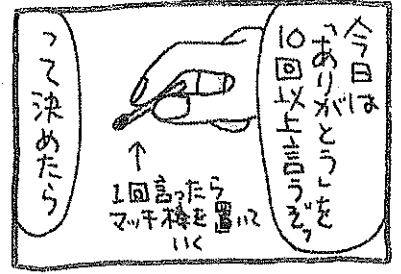 今日は
「ありがとう」を
10回以上言うぞッ
って決めたら
↑
1回言ったら
マッチ棒を置いて
いく